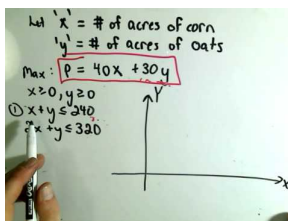 Let 'x' = # of acres of corn
'y' = # of acres of oats
Max: P = 40x + 30y
x ≥ 0, y ≥ 0
① x + y ≤ 240
2x + y ≤ 320
y
x